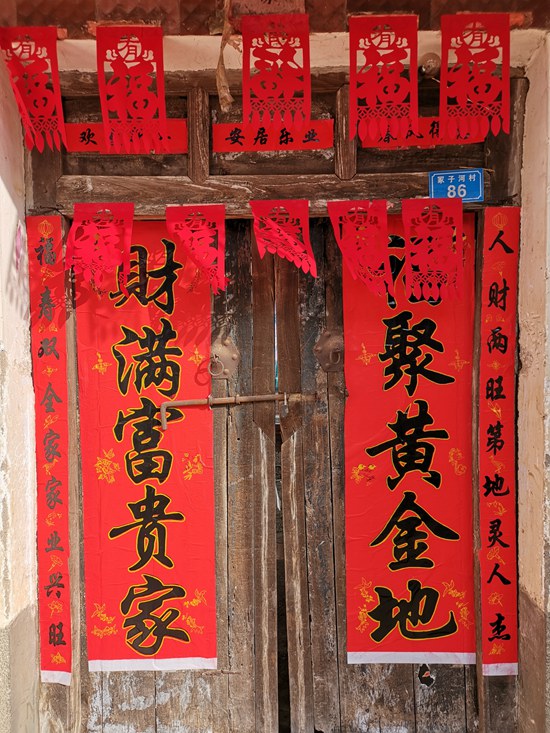 有福
有福
有福
有福
有福
欢
安居乐业
子河村
86
人财两旺第地灵人杰
福聚黄金地
财满富贵家
福寿双全家家业兴旺